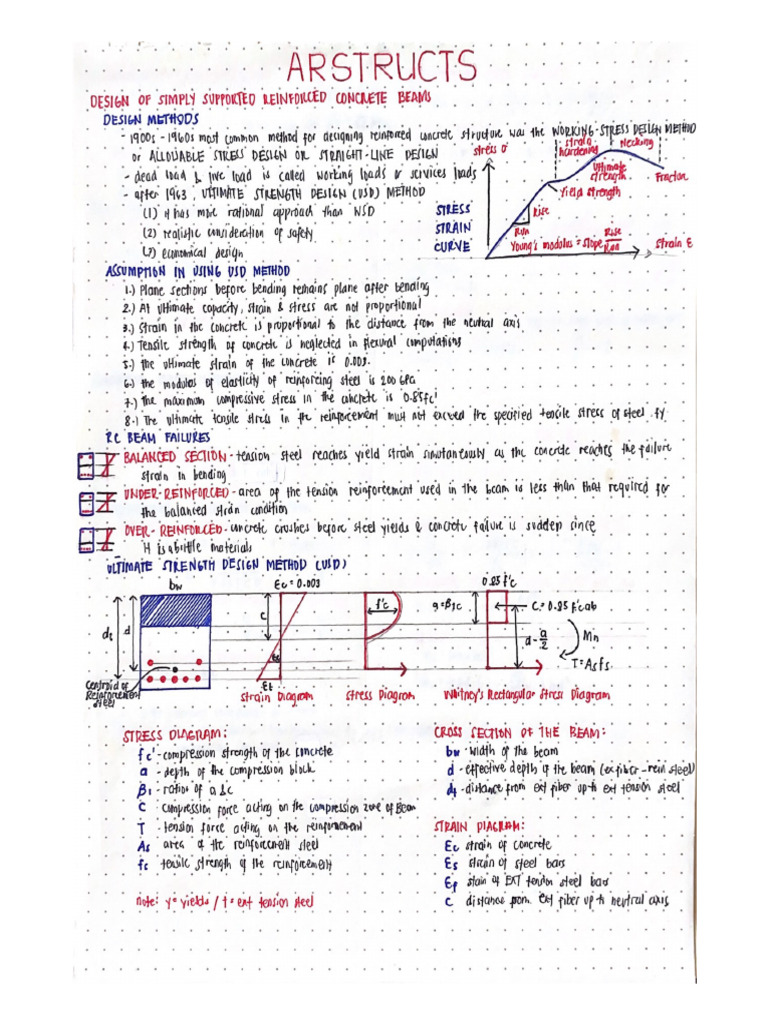 ARSTRUCTS
DESIGN OF SIMPLY SUPPORTED REINFORCED CONCRETE BEAMS
DESIGN METHODS
- 1900s - 1960s most common method for designing reinforced concrete structure was the WORKING-STRESS DESIGN METHOD
or ALLOWABLE STRESS DESIGN OR STRAIGHT-LINE DESIGN
- dead load & live load is called working loads or services loads
- after 1963, ULTIMATE STRENGTH DESIGN (USD) METHOD
(1) it has more rational approach than WSD
(2) realistic consideration of safety
(3) economical design
stress σ
strain
hardening
Necking
Ultimate
strength
Fracton
Yield strength
STRESS
STRAIN
CURVE
Rise
Run
Young's modulus = slope Rise/Run
strain ε
ASSUMPTION IN USING USD METHOD
1.) Plane sections before bending remains plane after bending
2.) At ultimate capacity, strain & stress are not proportional
3.) Strain in the concrete is proportional to the distance from the neutral axis
4.) Tensile strength of concrete is neglected in flexural computations
5.) The ultimate strain of the concrete is 0.003.
6.) the modulus of elasticity of reinforcing steel is 200 GPa
7.) The maximum compressive stress in the concrete is 0.85fc'
8.) The ultimate tensile stress in the reinforcement must not exceed the specified tensile stress of steel fy
RC BEAM FAILURES
BALANCED SECTION - tension steel reaches yield strain simultaneously as the concrete reaches the failure
strain in bending
UNDER-REINFORCED - area of the tension reinforcement used in the beam is less than that required for
the balanced strain condition
OVER-REINFORCED - concrete crushes before steel yields & concrete failure is sudden since
it is a brittle materials
ULTIMATE STRENGTH DESIGN METHOD (USD)
bw
εc = 0.003
0.85 f'c
dt
d
c
f'c
a = β1c
C = 0.85 f'cab
d - a/2
Mn
T = Asfs
εs
εt
Centroid of
Reinforcement
steel
Strain Diagram
Stress Diagram
Whitney's Rectangular Stress Diagram
STRESS DIAGRAM:
fc' - compression strength of the concrete
a - depth of the compression block
β1 - ratio of a & c
C compression force acting on the compression zone of Beam
T - tension force acting on the reinforcement
As area of the reinforcement steel
fs tensile strength of the reinforcement
note: y = yields / t = ext tension steel
CROSS SECTION OF THE BEAM:
bw - width of the beam
d - effective depth of the beam (ex fiber - rein steel)
dt - distance from ext fiber up to ext tension steel
STRAIN DIAGRAM:
Ɛc strain of concrete
Ɛs strain of steel bars
Ɛt stain of EXT tension steel bars
c distance from ext fiber up to neutral axis